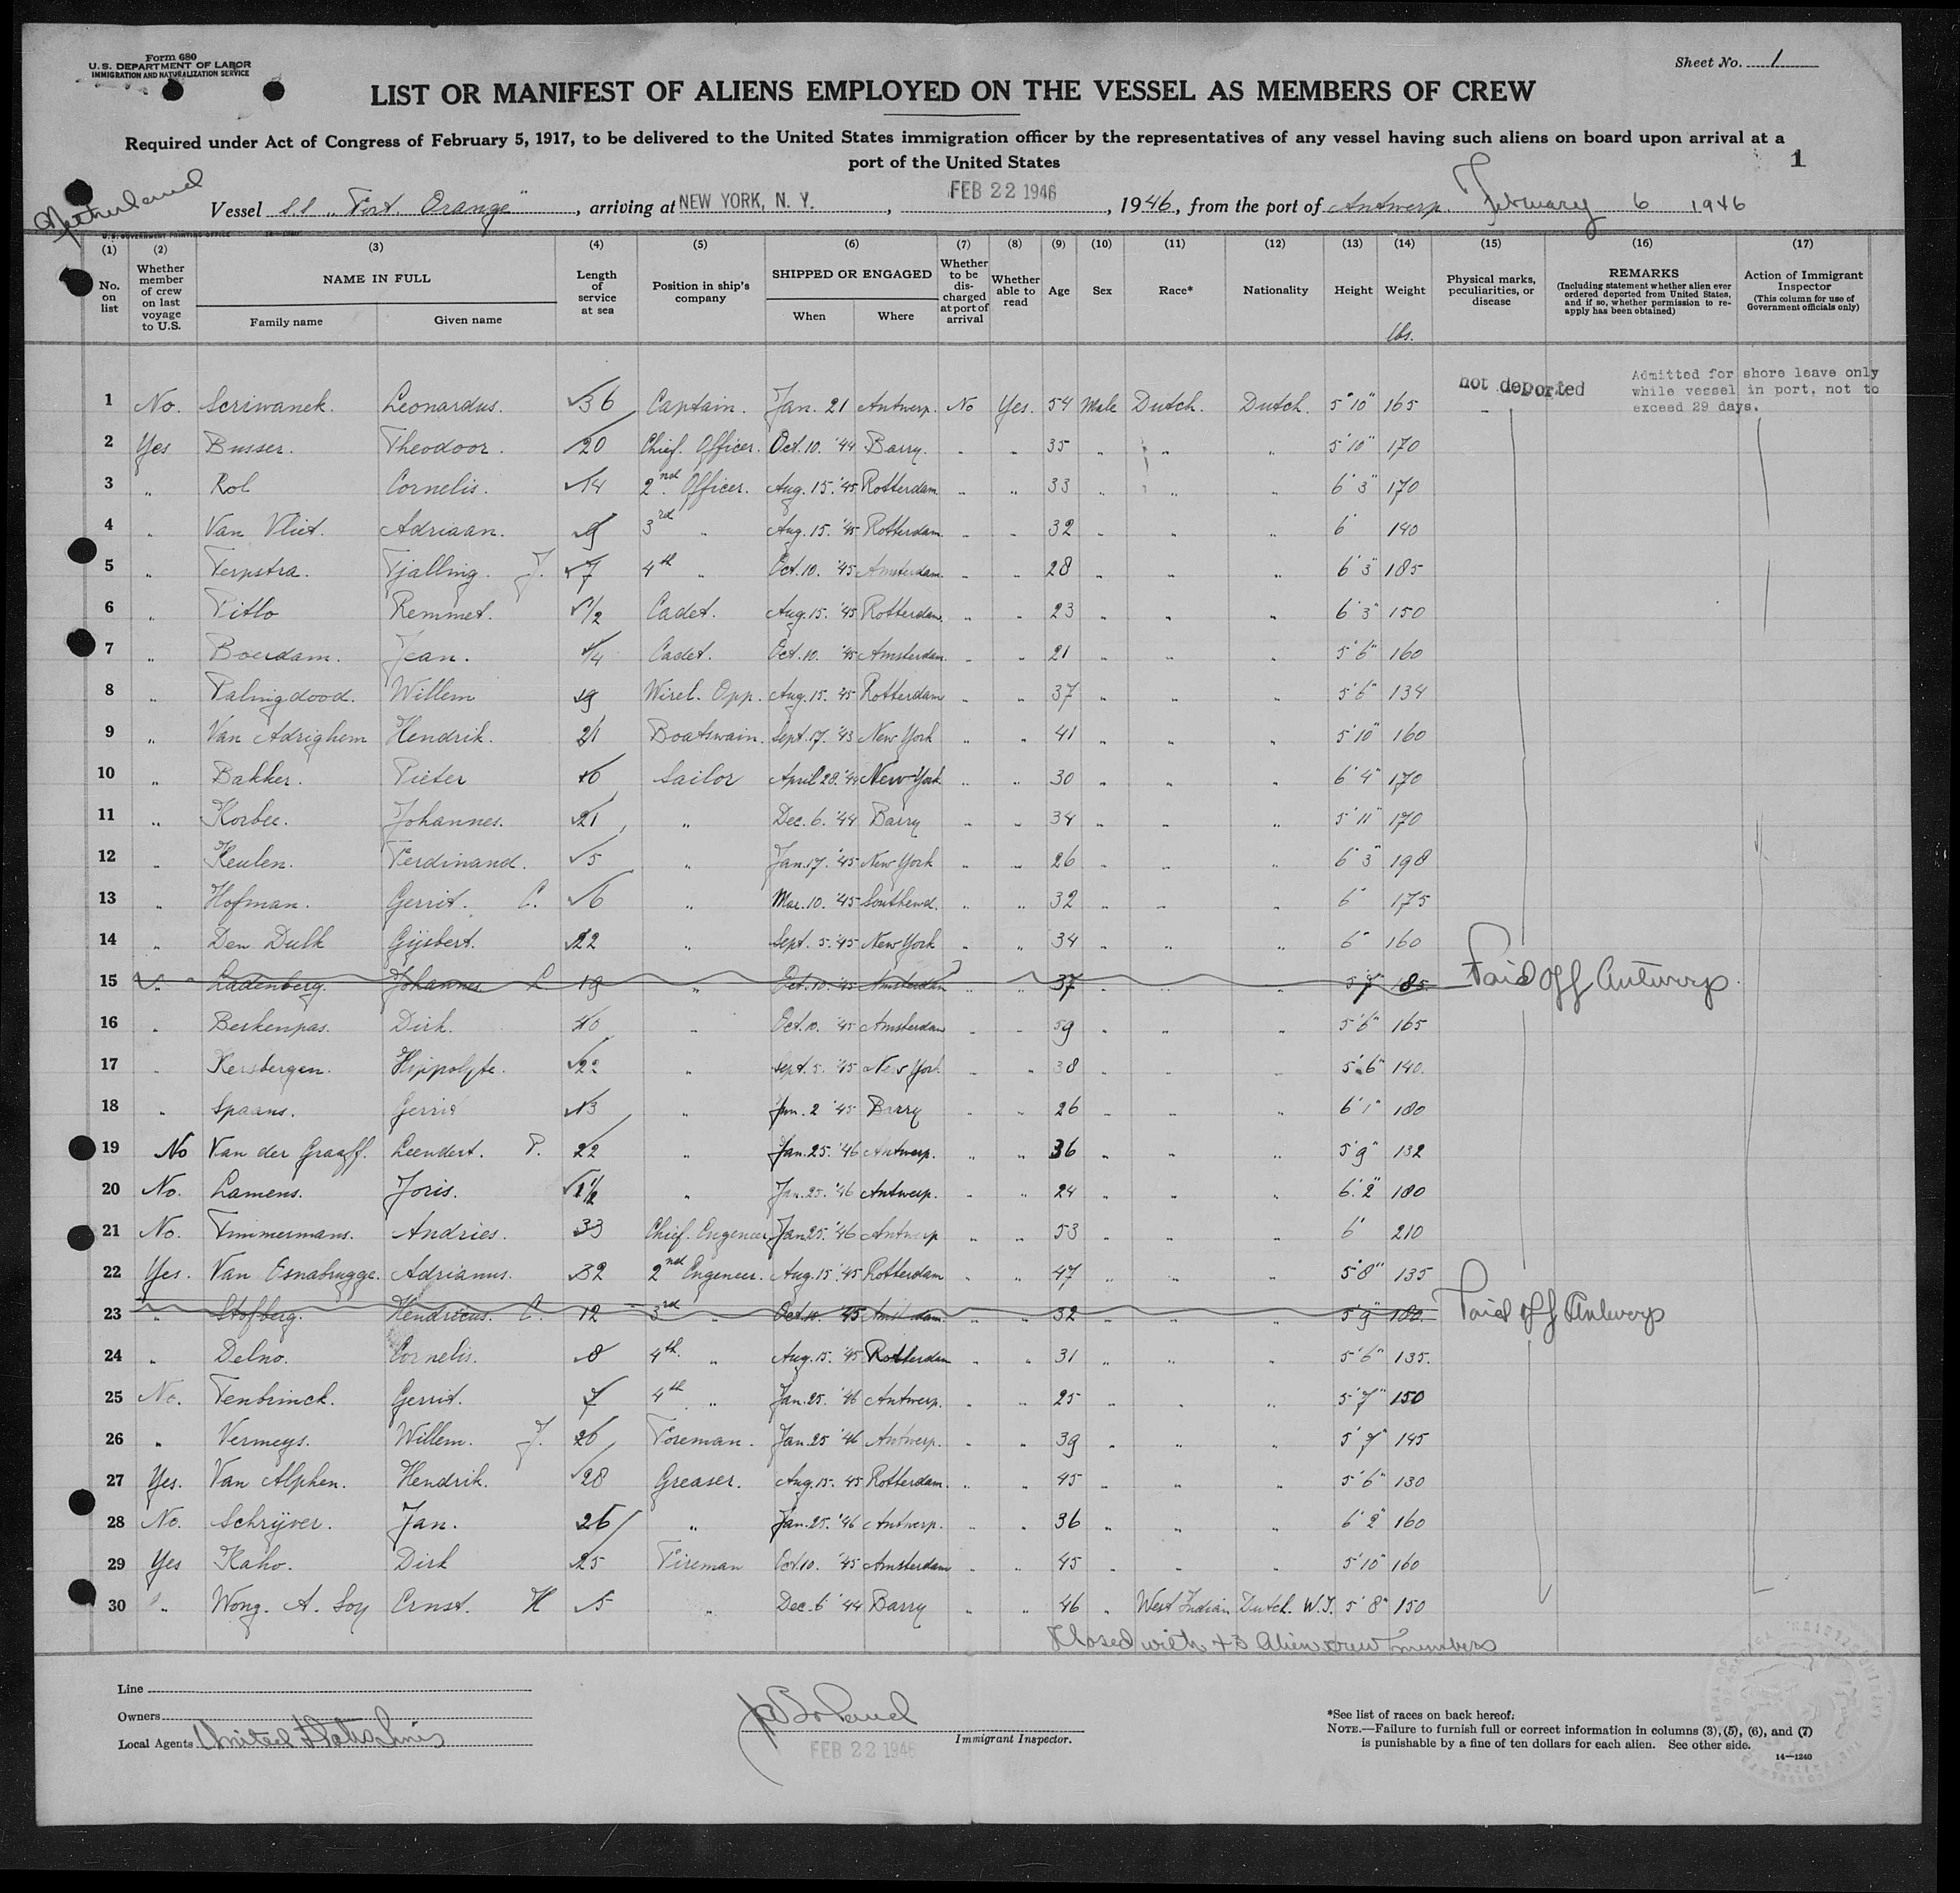 Form 680
U.S. DEPARTMENT OF LABOR
IMMIGRATION AND NATURALIZATION SERVICE
Sheet No. 1
LIST OR MANIFEST OF ALIENS EMPLOYED ON THE VESSEL AS MEMBERS OF CREW
Required under Act of Congress of February 5, 1917, to be delivered to the United States immigration officer by the representatives of any vessel having such aliens on board upon arrival at a
port of the United States
1
Netherland
Vessel s.s. "Fort Orange", arriving at NEW YORK, N. Y., FEB 22 1946, 1946, from the port of Antwerp. February 6 1946
(1) (2) (3) (4) (5) (6) (7) (8) (9) (10) (11) (12) (13) (14) (15) (16) (17)
No. on list
Whether member of crew on last voyage to U.S.
NAME IN FULL
Family name Given name
Length of service at sea
Position in ship's company
SHIPPED OR ENGAGED
When Where
Whether to be discharged at port of arrival
Whether able to read
Age Sex Race* Nationality Height Weight
lbs.
Physical marks, peculiarities, or disease
REMARKS
(Including statement whether alien ever ordered deported from United States, and if so, whether permission to reapply has been obtained)
Action of Immigrant Inspector
(This column for use of Government officials only)
not deported
Admitted for shore leave only
while vessel in port, not to
exceed 29 days.
1 No. Scriwanek. Leonardus. 36 Captain. Jan. 21 Antwerp. No Yes. 54 Male Dutch. Dutch. 5'10" 165
2 Yes Busser. Theodoor. 20 Chief. Officer. Oct. 10. '44 Barry. " " 35 " " " 5'10" 170
3 " Rol Cornelis. 14 2nd. Officer. Aug. 15. '45 Rotterdam " " 33 " " " 6'3" 170
4 " Van Vliet. Adriaan. 9 3rd " Aug. 15. '45 Rotterdam. " " 32 " " " 6' 140
5 " Terpstra. Tjalling. J. 7 4th " Oct. 10. '45 Amsterdam. " " 28 " " " 6'3" 185
6 " Titlo Remmet. 1/2 Cadet. Aug. 15. '45 Rotterdam. " " 23 " " " 6'3" 150
7 " Boerdam. Jean. 1/4 Cadet. Oct. 10. '45 Amsterdam. " " 21 " " " 5'6" 160
8 " Palingdood. Willem 19 Wirel. Opp. Aug. 15. '45 Rotterdam " " 37 " " " 5'6" 134
9 " Van Adrighem Hendrik. 21 Boatswain. Sept. 17. '43 New York " " 41 " " " 5'10" 160
10 " Bakker. Pieter 10 Sailor April 28. '44 New York " " 30 " " " 6'4" 170
11 " Korbee. Johannes. 21 " Dec. 6. '44 Barry " " 34 " " " 5'11" 170
12 " Keulen. Ferdinand. 5 " Jan. 17. '45 New York " " 26 " " " 6'3" 198
13 " Hofman. Gerrit. C. 6 " Mar. 10. '45 Southend. " " 32 " " " 6' 175
14 " Den Dulk Gijsbert. 22 " Sept. 5. '45 New York " " 34 " " " 6' 160
15 " Ladenberg. Johannes L. 19 " Oct. 10. '45 Amsterdam " " 37 " " " 5'7" 185. Paid off Antwerp.
16 " Berkenpas. Dirk. 40 " Oct. 10. '45 Amsterdam " " 59 " " " 5'6" 165
17 " Kersbergen. Hippolyte. 22 " Sept. 5. '45 New York. " " 38 " " " 5'6" 140.
18 " Spaans. Gerrit 13 " Jan. 2 '45 Barry " " 26 " " " 6'1" 180
19 No Van der Graaff. Leendert. P. 22 " Jan. 25. '46 Antwerp. " " 36 " " " 5'9" 132
20 No. Lamens. Joris. 1 1/2 " Jan. 25. '46 Antwerp. " " 24 " " " 6'2" 180
21 No. Timmermans. Andries. 33 Chief. Engeneer Jan 25. '46 Antwerp " " 53 " " " 6' 210
22 Yes. Van Esnabrugge. Adrianus. 32 2nd Engeneer. Aug. 15. '45 Rotterdam " " 47 " " " 5'8" 135
23 " Stofberg. Hendricus. C. 12 3rd " Oct. 10. '45 Amsterdam. " " 32 " " " 5'9" 180. Paid off Antwerp
24 " Delno. Cornelis. 8 4th. " Aug. 15. '45 Rotterdam " " 31 " " " 5'6" 135.
25 No. Tenbrinck. Gerrit. 7 4th " Jan. 25. '46 Antwerp. " " 25 " " " 5'7" 150
26 " Vermeys. Willem. J. 26 Foreman. Jan. 25 '46 Antwerp. " " 39 " " " 5'7" 145
27 Yes. Van Alphen. Hendrik. 28 Greaser. Aug. 15. 45 Rotterdam. " " 45 " " " 5'6" 130
28 No. Schrijver. Jan. 26 " Jan. 25. '46 Antwerp. " " 36 " " " 6'2" 160
29 Yes Kaho. Dirk 25 Fireman Oct 10. '45 Amsterdam " " 45 " " " 5'10" 160
30 " Wong. A. Soy Ernst. H 5 " Dec. 6 '44 Barry " " 46 " West Indian Dutch. W.I. 5'8" 150
Closed with 43 Alien crew members
Line
Owners
Local Agents United States Lines
FEB 22 1946
Immigrant Inspector.
*See list of races on back hereof.
NOTE.—Failure to furnish full or correct information in columns (3), (5), (6), and (7)
is punishable by a fine of ten dollars for each alien. See other side.
14—1240